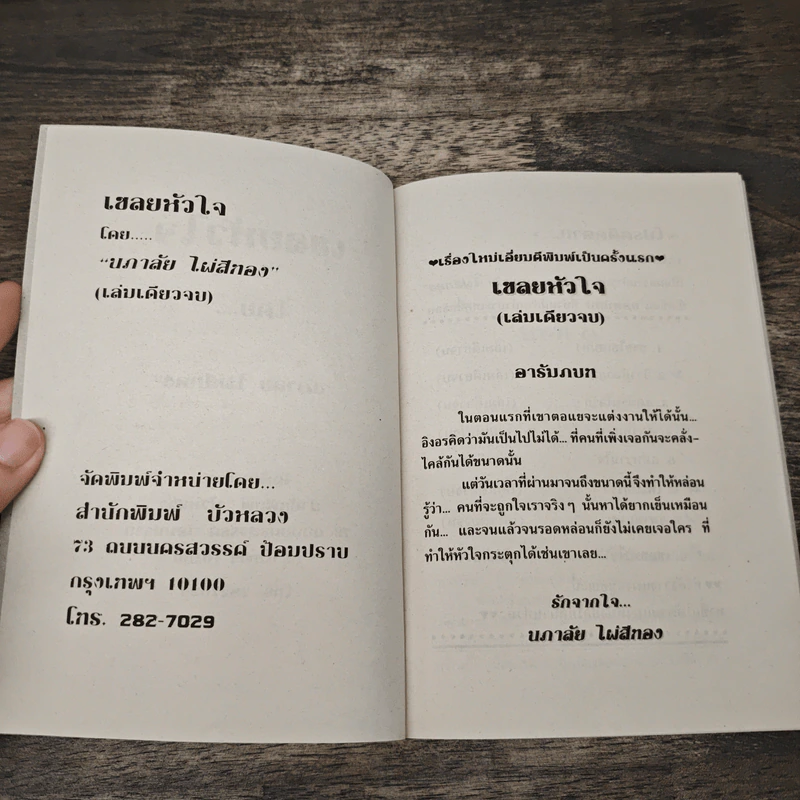 เชลยหัวใจ
โดย.....
“นภาลัย ไผ่สีทอง”
(เล่มเดียวจบ)
จัดพิมพ์จำหน่ายโดย...
สำนักพิมพ์ บัวหลวง
73 ถนนนครสวรรค์ ป้อมปราบ
กรุงเทพฯ 10100
โทร. 282-7029
❤เรื่องใหม่เอี่ยมตีพิมพ์เป็นครั้งแรก❤
เชลยหัวใจ
(เล่มเดียวจบ)
อารัมภบท
ในตอนแรกที่เขาตอแยจะแต่งงานให้ได้นั้น...
อิงอรคิดว่ามันเป็นไปไม่ได้... ที่คนที่เพิ่งเจอกันจะคลั่ง-
ไคล้กันได้ขนาดนั้น
แต่วันเวลาที่ผ่านมาจนถึงขนาดนี้จึงทำให้หล่อน
รู้ว่า... คนที่จะถูกใจเราจริงๆ นั้นหาได้ยากเย็นเหมือน
กัน... และจนแล้วจนรอดหล่อนก็ยังไม่เคยเจอใคร ที่
ทำให้หัวใจกระตุกได้เช่นเขาเลย...
รักจากใจ...
นภาลัย ไผ่สีทอง